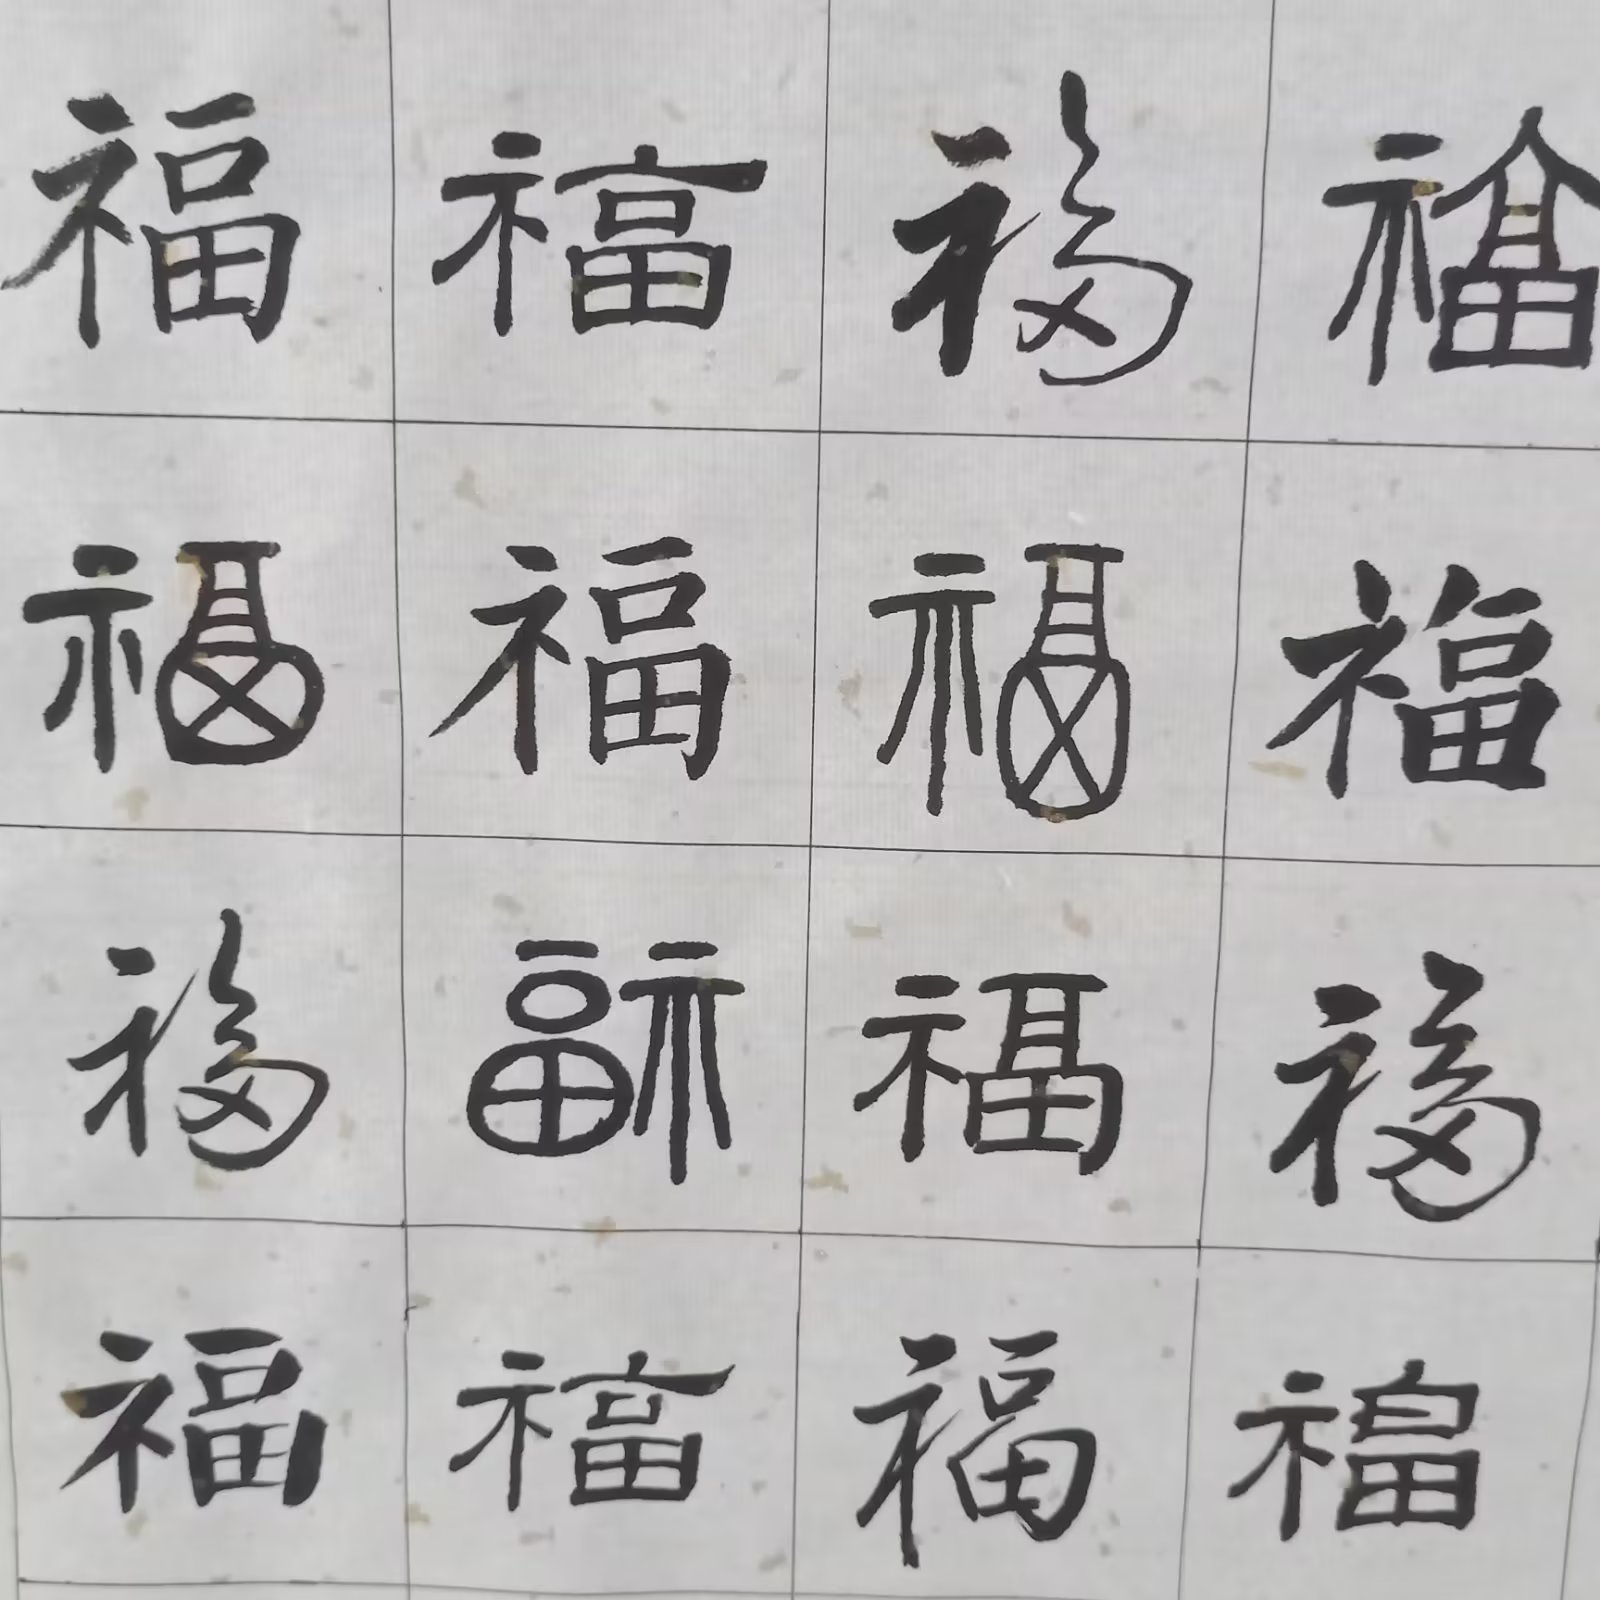 福 福 福 福
福 福 福 福
福 福 福 福
福 福 福 福